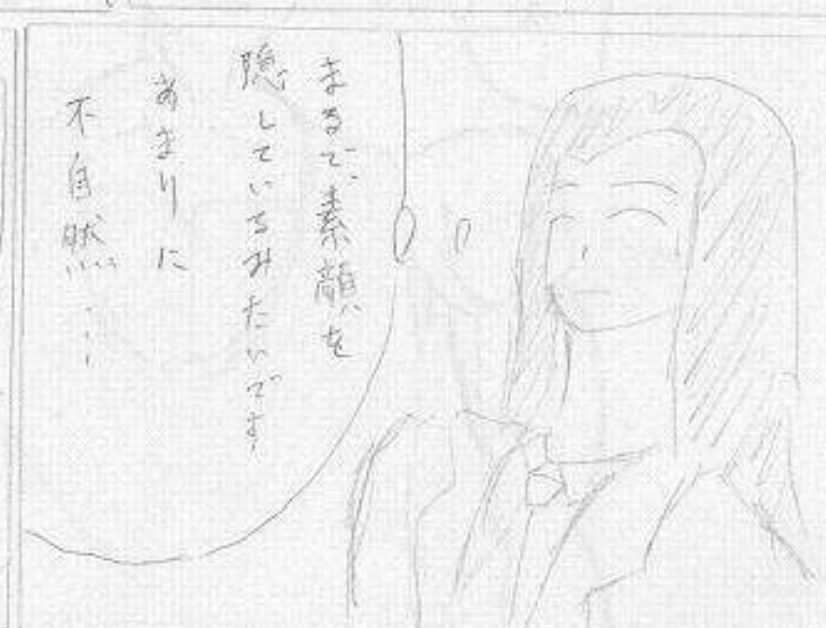 まるで素顔を
隠しているみたいです
あまりに
不自然…